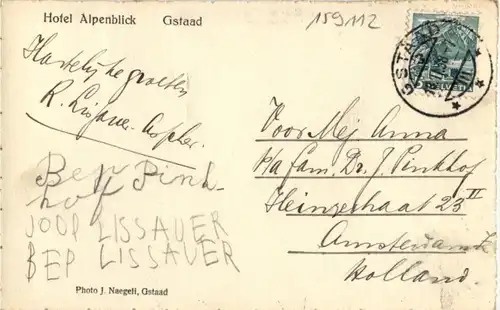 Hotel Alpenblick Gstaad
159112
GSTAAD
Hartelijke groeten
R. Lissauer-
Bep Pink-
hof
JOOP LISSAUER
BEP LISSAUER
Photo J. Naegeli, Gstaad
Voor Mej Anna
p/a fam. Dr. J. Pinkhof
Heinzestraat 23 II
Amsterdam Z
Holland.